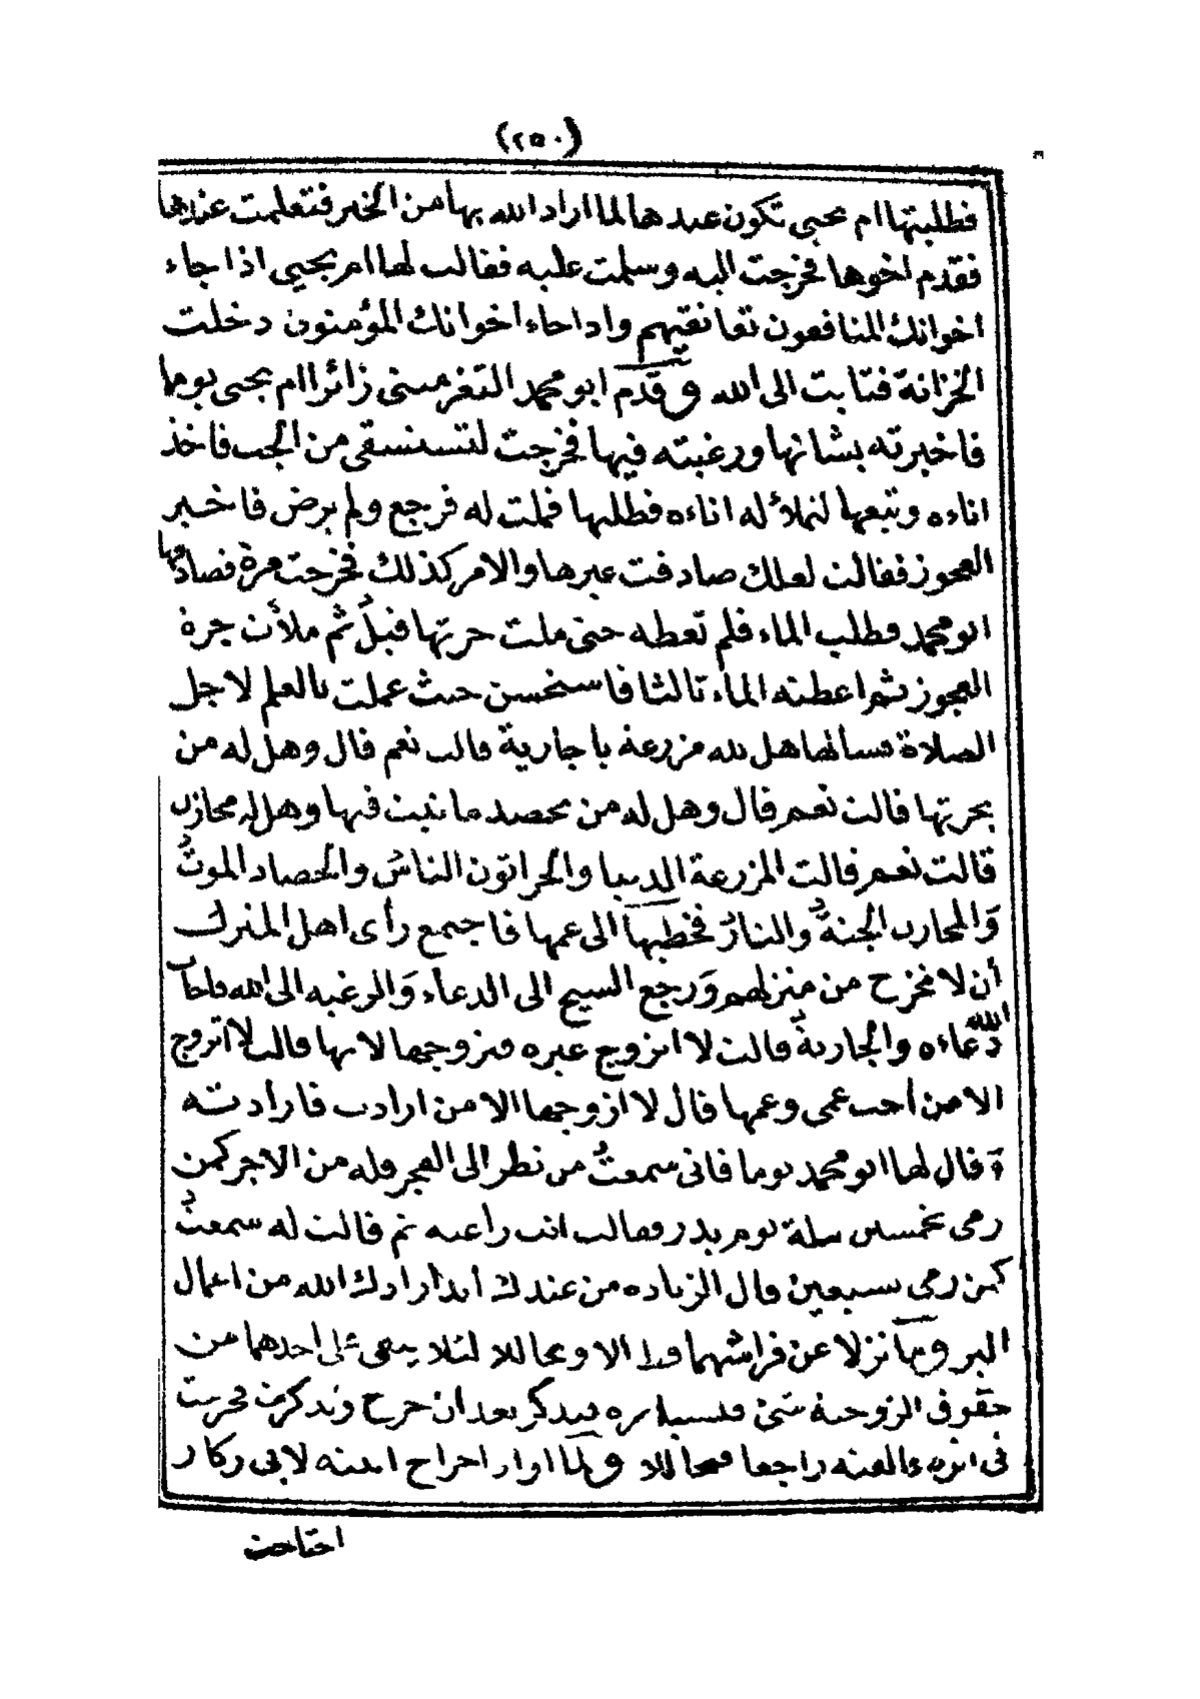 (٢٥٠)
فطلبتها ام يحيى تكون عندها لما اراد الله بها من الخير فتعلمت عندها
فقدم اخوها فخرجت اليه وسلمت عليه فقالت لها ام يحيى اذا جاء
اخوانك المنافقون تعانقيهم واذا جاء اخوانك المؤمنون دخلت
الخزانة فتابت الى الله وقدم ابو محمد التغرميني زائرا ام يحيى يوما
فاخبرته بشانها ورغبته فيها فخرجت لتستسقي من الجب فاخذ
اناءه وتبعها لتملأ له اناءه فطلبها فملت له فرجع ولم يرض فاخبر
العجوز فقالت لعلك صادفت غيرها والامر كذلك فخرجت مرة فصادفها
ابو محمد فطلب الماء فلم تعطه حتى ملت جرتها قبل ثم ملأت جرة
العجوز ثم اعطته الماء ثالثا فاستحسن حيث عملت بالعلم لاجل
الصلاة فسالها هل لله مزرعة يا جارية قالت نعم قال وهل له من
يحرثها قالت نعم قال وهل له من يحصد ما نبت فيها وهل له مخازن
قالت نعم قالت المزرعة الدنيا والحراثون الناس والحصاد الموت
والمخازن الجنة والنار فخطبها الى عمها فاجتمع رأى اهل المنزل
أن لا تخرج من منزلهم ورجع الشيخ الى الدعاء والرغبة الى الله فاجاب
الله دعاءه والجارية قالت لا اتزوج غيره فتزوجها لابها قالت لا اتزوج
الا من أحب عمي وعمها قال لا ازوجها الا من ارادت فارادته
وقال لها ابو محمد يوما فانى سمعت من نظر الى الفجر فله من الاجر كمن
رمى بخمسين سلة يوم بدر فقالت انت راعيه ثم قالت له سمعت
كمن رمى بسبعين قال الزيادة من عندك أبدا زادك الله من اعمال
البر وما نزلا عن فراشهما قط الا وتحاللا لئلا يبقى على احدهما من
حقوق الزوجية شئ فنسيا مرة فتذكر بعد ان خرج وتذكرت فخرجت
في اثره فالفته راجعا فتحاللا ولما اراد اخراج ابنته لابي زكار
احتاجت